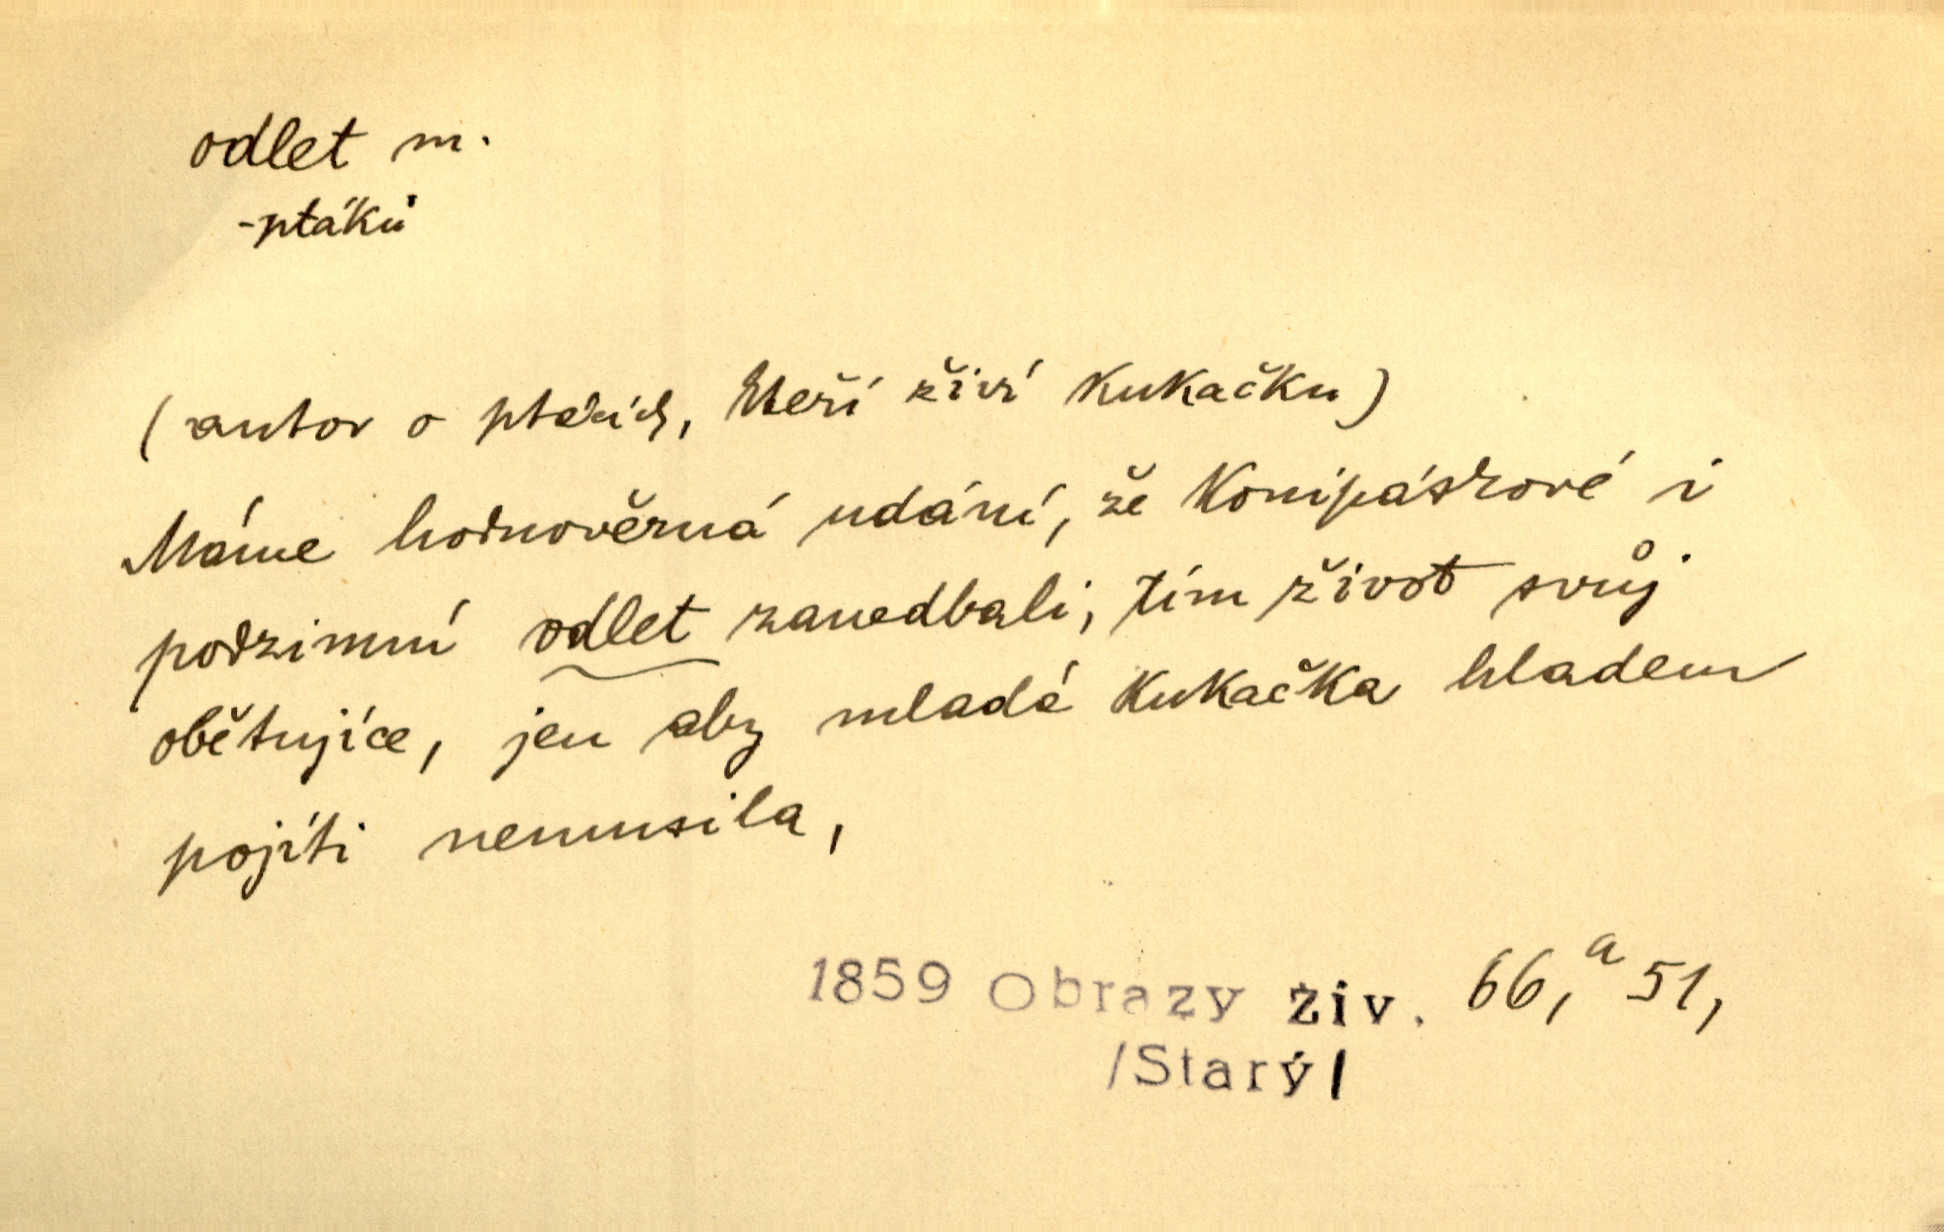 odlet m.
-ptáků
(autor o ptácích, kteří živí kukačku)
Máme hodnověrná udání, že Konipáskové i
podzimní odlet zanedbali, tím život svůj
obětujíce, jen aby mladá kukačka hladem
pojíti nemusila,
1859 Obrazy živ. 66, a 51,
/Starý/